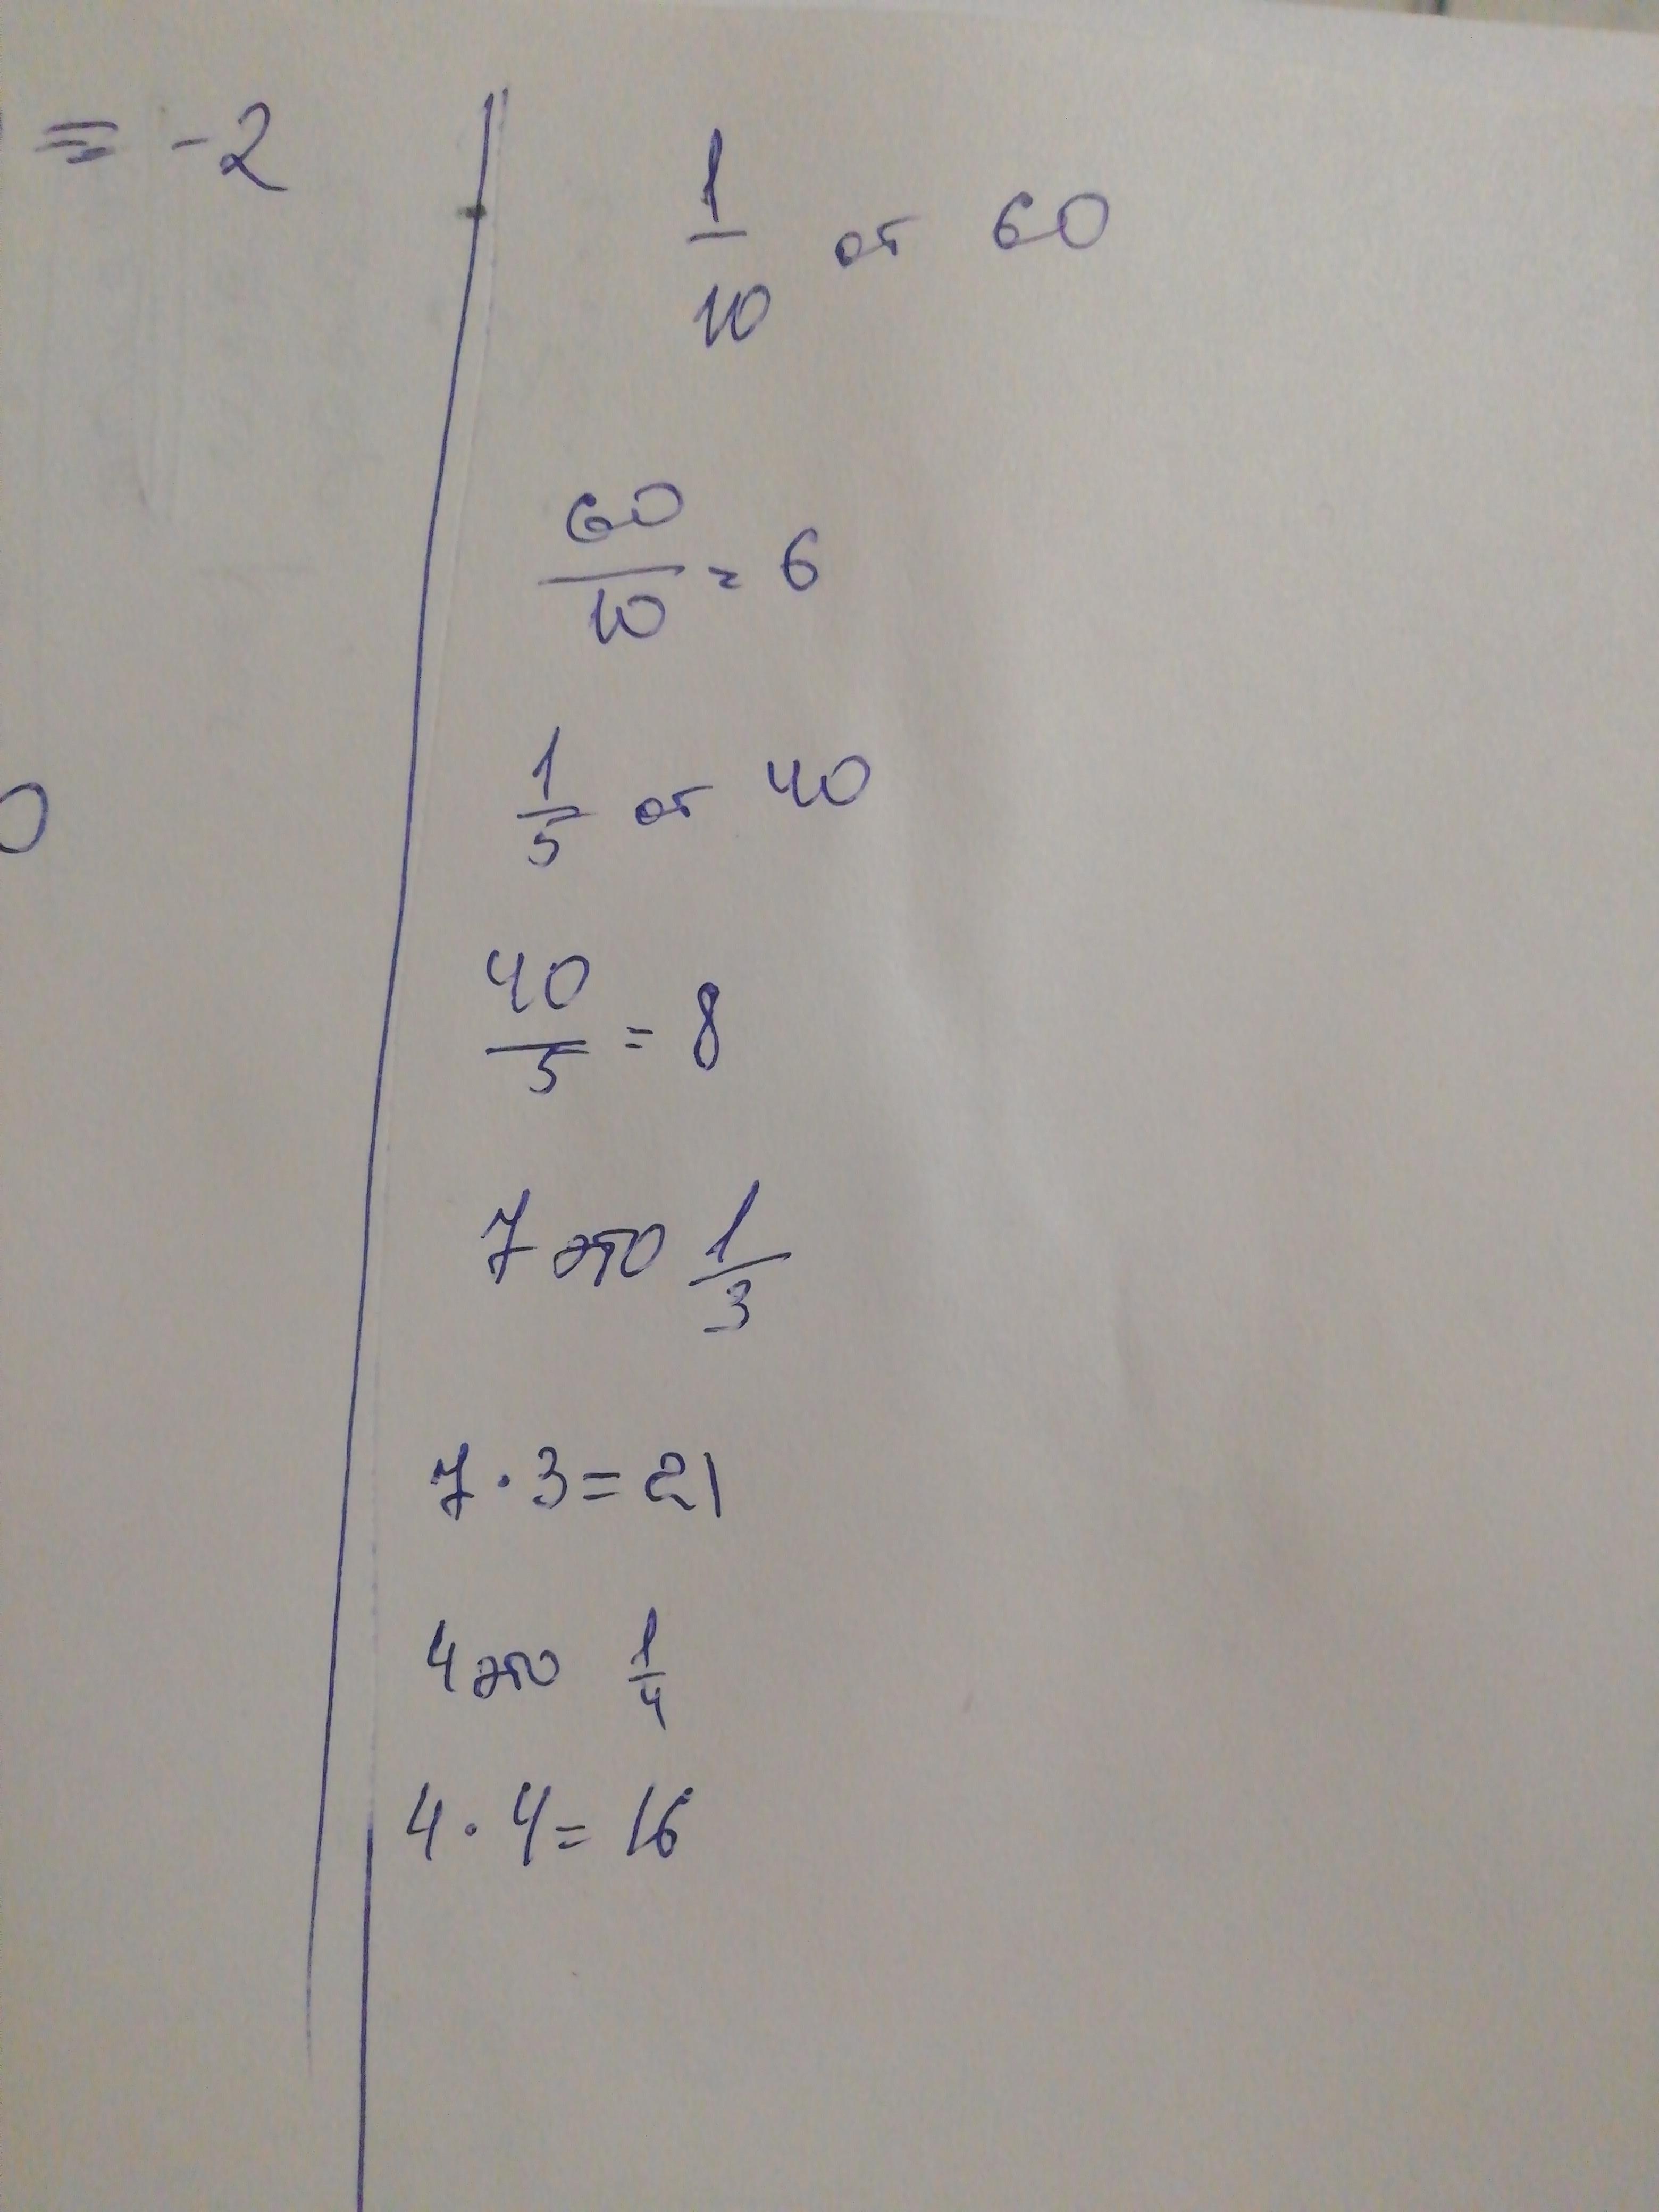 = -2
1/10 от 60
60/10 = 6
1/5 от 40
0
40/5 = 8
7 это 1/3
7 · 3 = 21
4 это 1/4
4 · 4 = 16